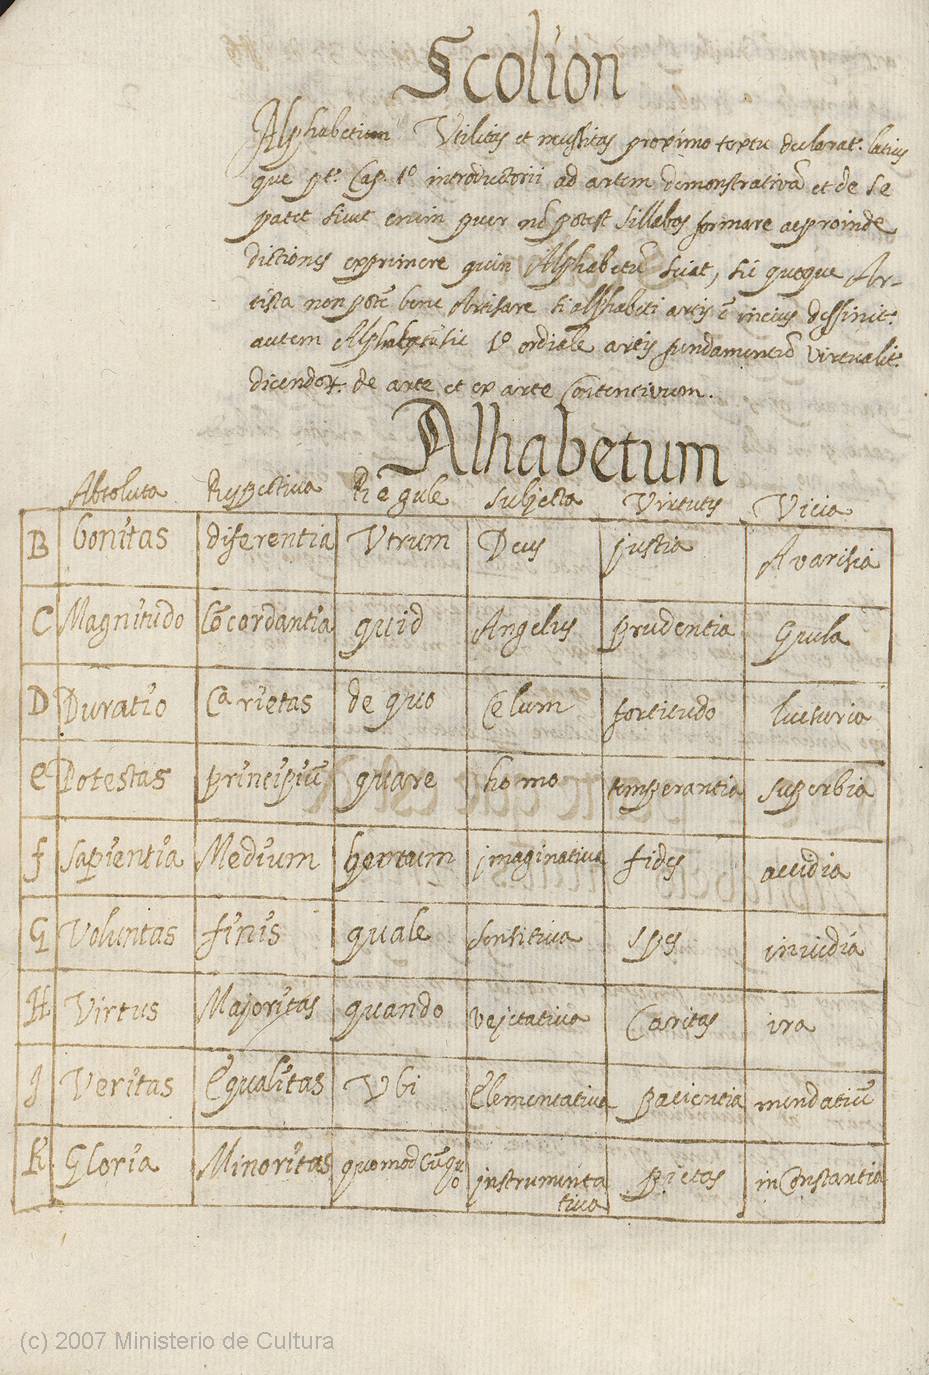 Scolion
Alphabetium Vtilitas et necessitas proximo textu declarat. latius
que pt. Cap. 1º introductorii ad artem demonstrativā et de se
patet sicut enim puer nō potest sillabas formare ac proinde
dictiones exprimere quin Alphabetū sciat, sic quoque Ar-
tista non potē bene Artisare si alphabeti artis ē inscius deffinit.
autem Alphabetū sic 1º ordiale artis fundamentū virtualit.
dicendor. de arte et ex arte Contentivum.
Alhabetum
Absoluta Respectiua Regule Subjecta Virtutes Vicia
B bonitas diferentia Vtrum Deus justia Avarisia
C Magnitudo Cōcordantia quid Angelus prudentia Gula
D Duratio Carietas de quo Celum fortitudo luxuria
e Potestas principiū quare homo temperantia superbia
f sapientia Medium imaginativa fides accidia
G Voluntas finis quale sensitiva spes inuidia
H Virtus Majoritas quando vejetativa Caritas ira
J Veritas equalitas Vbi Elementativa pacientia mendatiū
K Gloria Minoritas quomod Cū quo instrumenta pietas inConstantia
tiva
(c) 2007 Ministerio de Cultura